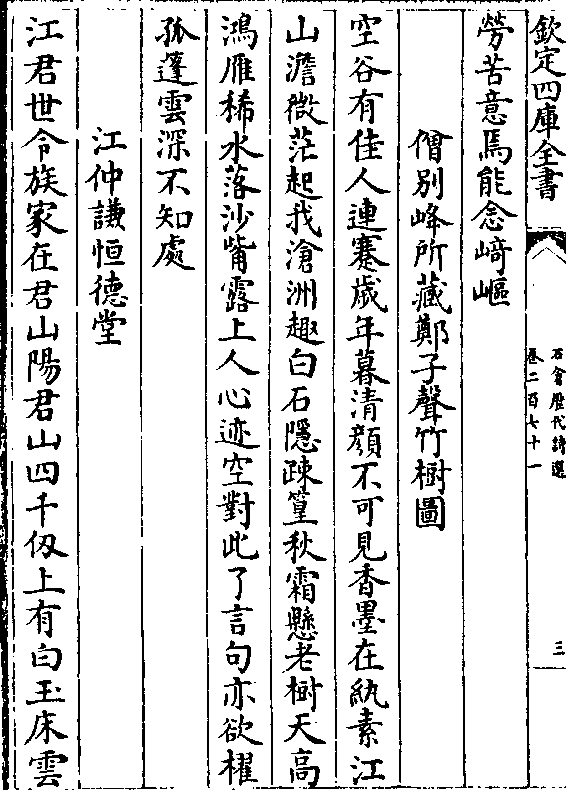 欽定四庫全書
石倉歷代詩選
卷二百七十一
三
勞苦意焉能念﨑嶇
僧别峰所藏鄭子聲竹樹圖
空谷有佳人連蹇歳年暮清顔不可見香墨在紈素江
山澹微茫起我滄洲趣白石隠疎篁秋霜懸老樹天高
鴻雁稀水落沙觜露上人心迹空對此了言句亦欲櫂
孤蓬雲深不知處
江仲謙恒德堂
江君世令族家在君山陽君山四千仭上有白玉床雲